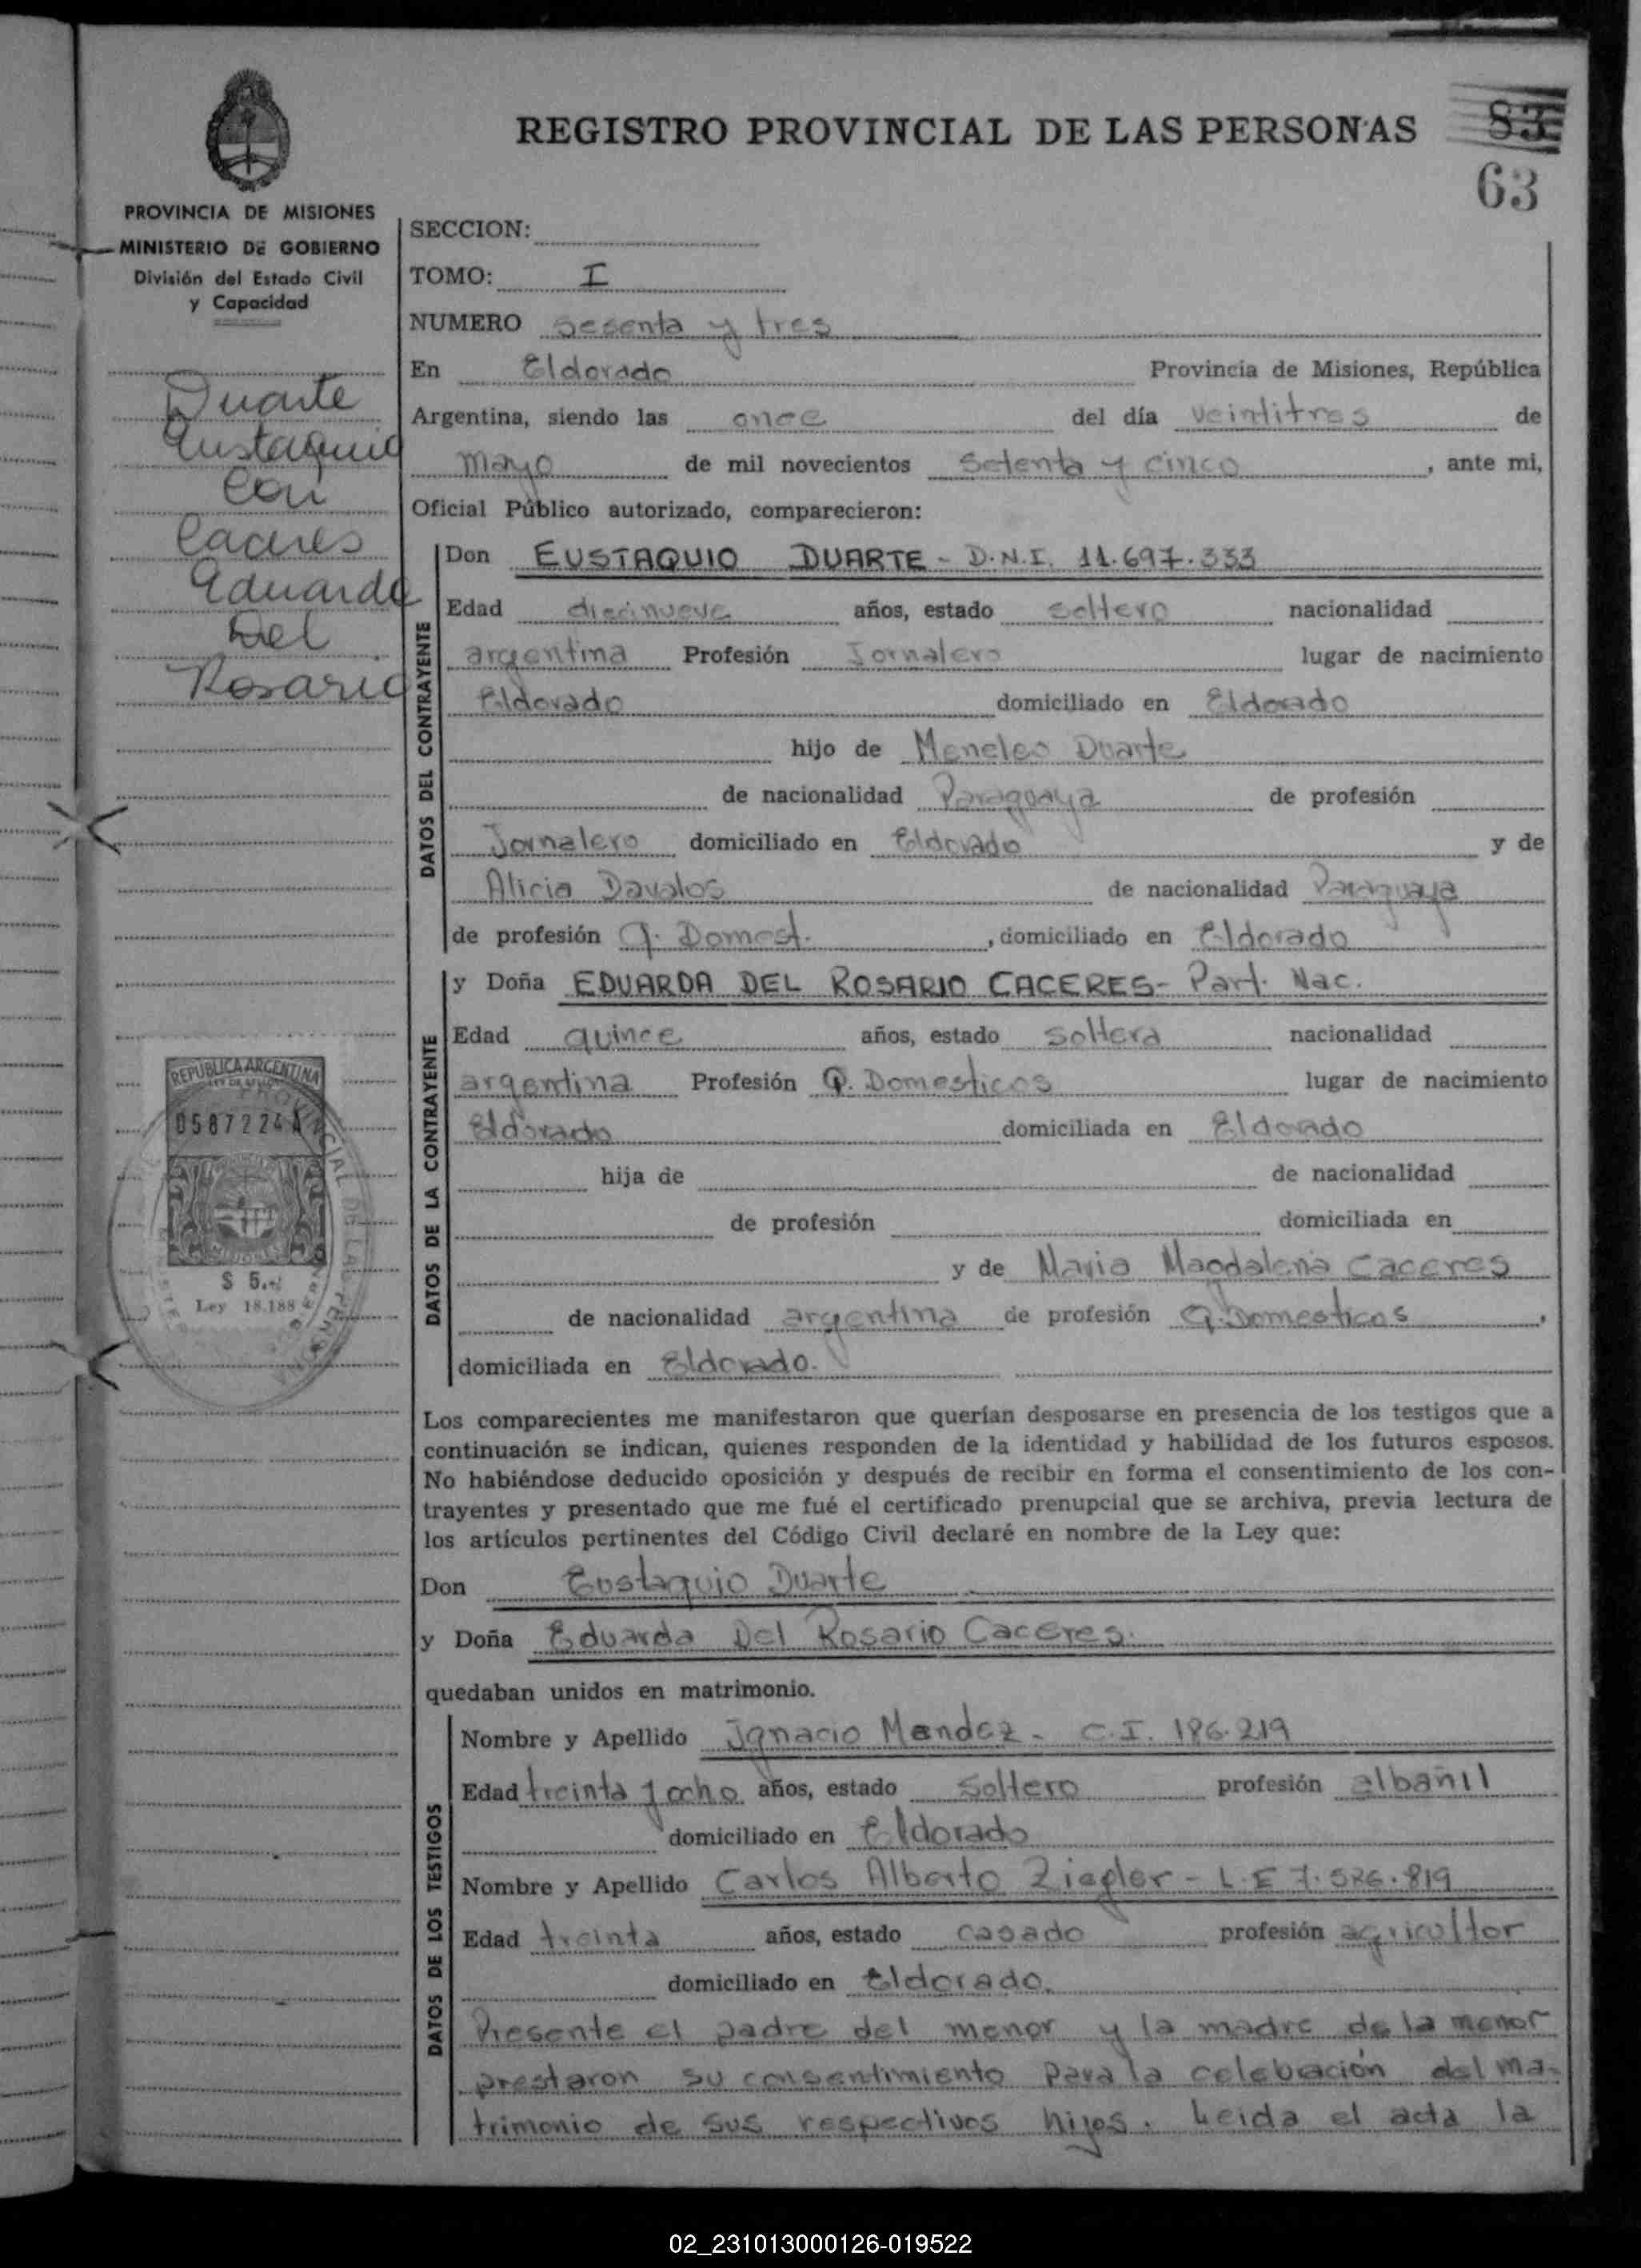 REGISTRO PROVINCIAL DE LAS PERSONAS
83
63
PROVINCIA DE MISIONES
MINISTERIO DE GOBIERNO
División del Estado Civil
y Capacidad
Duarte
Eustaquio
Con
Caceres
Eduarda
Del
Rosario
REPUBLICA ARGENTINA
0587224A
MISIONES
$ 5.-
Ley 18.188
SECCION:
TOMO: I
NUMERO sesenta y tres
En Eldorado Provincia de Misiones, República
Argentina, siendo las once del día veintitres de
mayo de mil novecientos setenta y cinco, ante mi,
Oficial Público autorizado, comparecieron:
DATOS DEL CONTRAYENTE
Don EUSTAQUIO DUARTE - D.N.I. 11.697.333
Edad diecinueve años, estado soltero nacionalidad
argentina Profesión Jornalero lugar de nacimiento
Eldorado domiciliado en Eldorado
hijo de Meneleo Duarte
de nacionalidad Paraguaya de profesión
Jornalero domiciliado en Eldorado y de
Alicia Davalos de nacionalidad Paraguaya
de profesión Q. Domest. , domiciliado en Eldorado
DATOS DE LA CONTRAYENTE
y Doña EDUARDA DEL ROSARIO CACERES- Part. Nac.
Edad quince años, estado soltera nacionalidad
argentina Profesión Q. Domesticos lugar de nacimiento
Eldorado domiciliada en Eldorado
hija de de nacionalidad
de profesión domiciliada en
y de Maria Magdalena Caceres
de nacionalidad argentina de profesión Q. Domesticos ,
domiciliada en Eldorado.
Los comparecientes me manifestaron que querían desposarse en presencia de los testigos que a
continuación se indican, quienes responden de la identidad y habilidad de los futuros esposos.
No habiéndose deducido oposición y después de recibir en forma el consentimiento de los con-
trayentes y presentado que me fué el certificado prenupcial que se archiva, previa lectura de
los artículos pertinentes del Código Civil declaré en nombre de la Ley que:
Don Eustaquio Duarte
y Doña Eduarda Del Rosario Caceres.
quedaban unidos en matrimonio.
DATOS DE LOS TESTIGOS
Nombre y Apellido Ignacio Mendez - C.I. 186.219
Edad treinta y ocho años, estado soltero profesión albañil
domiciliado en Eldorado
Nombre y Apellido Carlos Alberto Ziegler - L.E 7.586.819
Edad treinta años, estado casado profesión agricultor
domiciliado en Eldorado.
Presente el padre del menor y la madre de la menor
prestaron su consentimiento para la celebración del ma-
trimonio de sus respectivos hijos. Leida el acta la
02_231013000126-019522